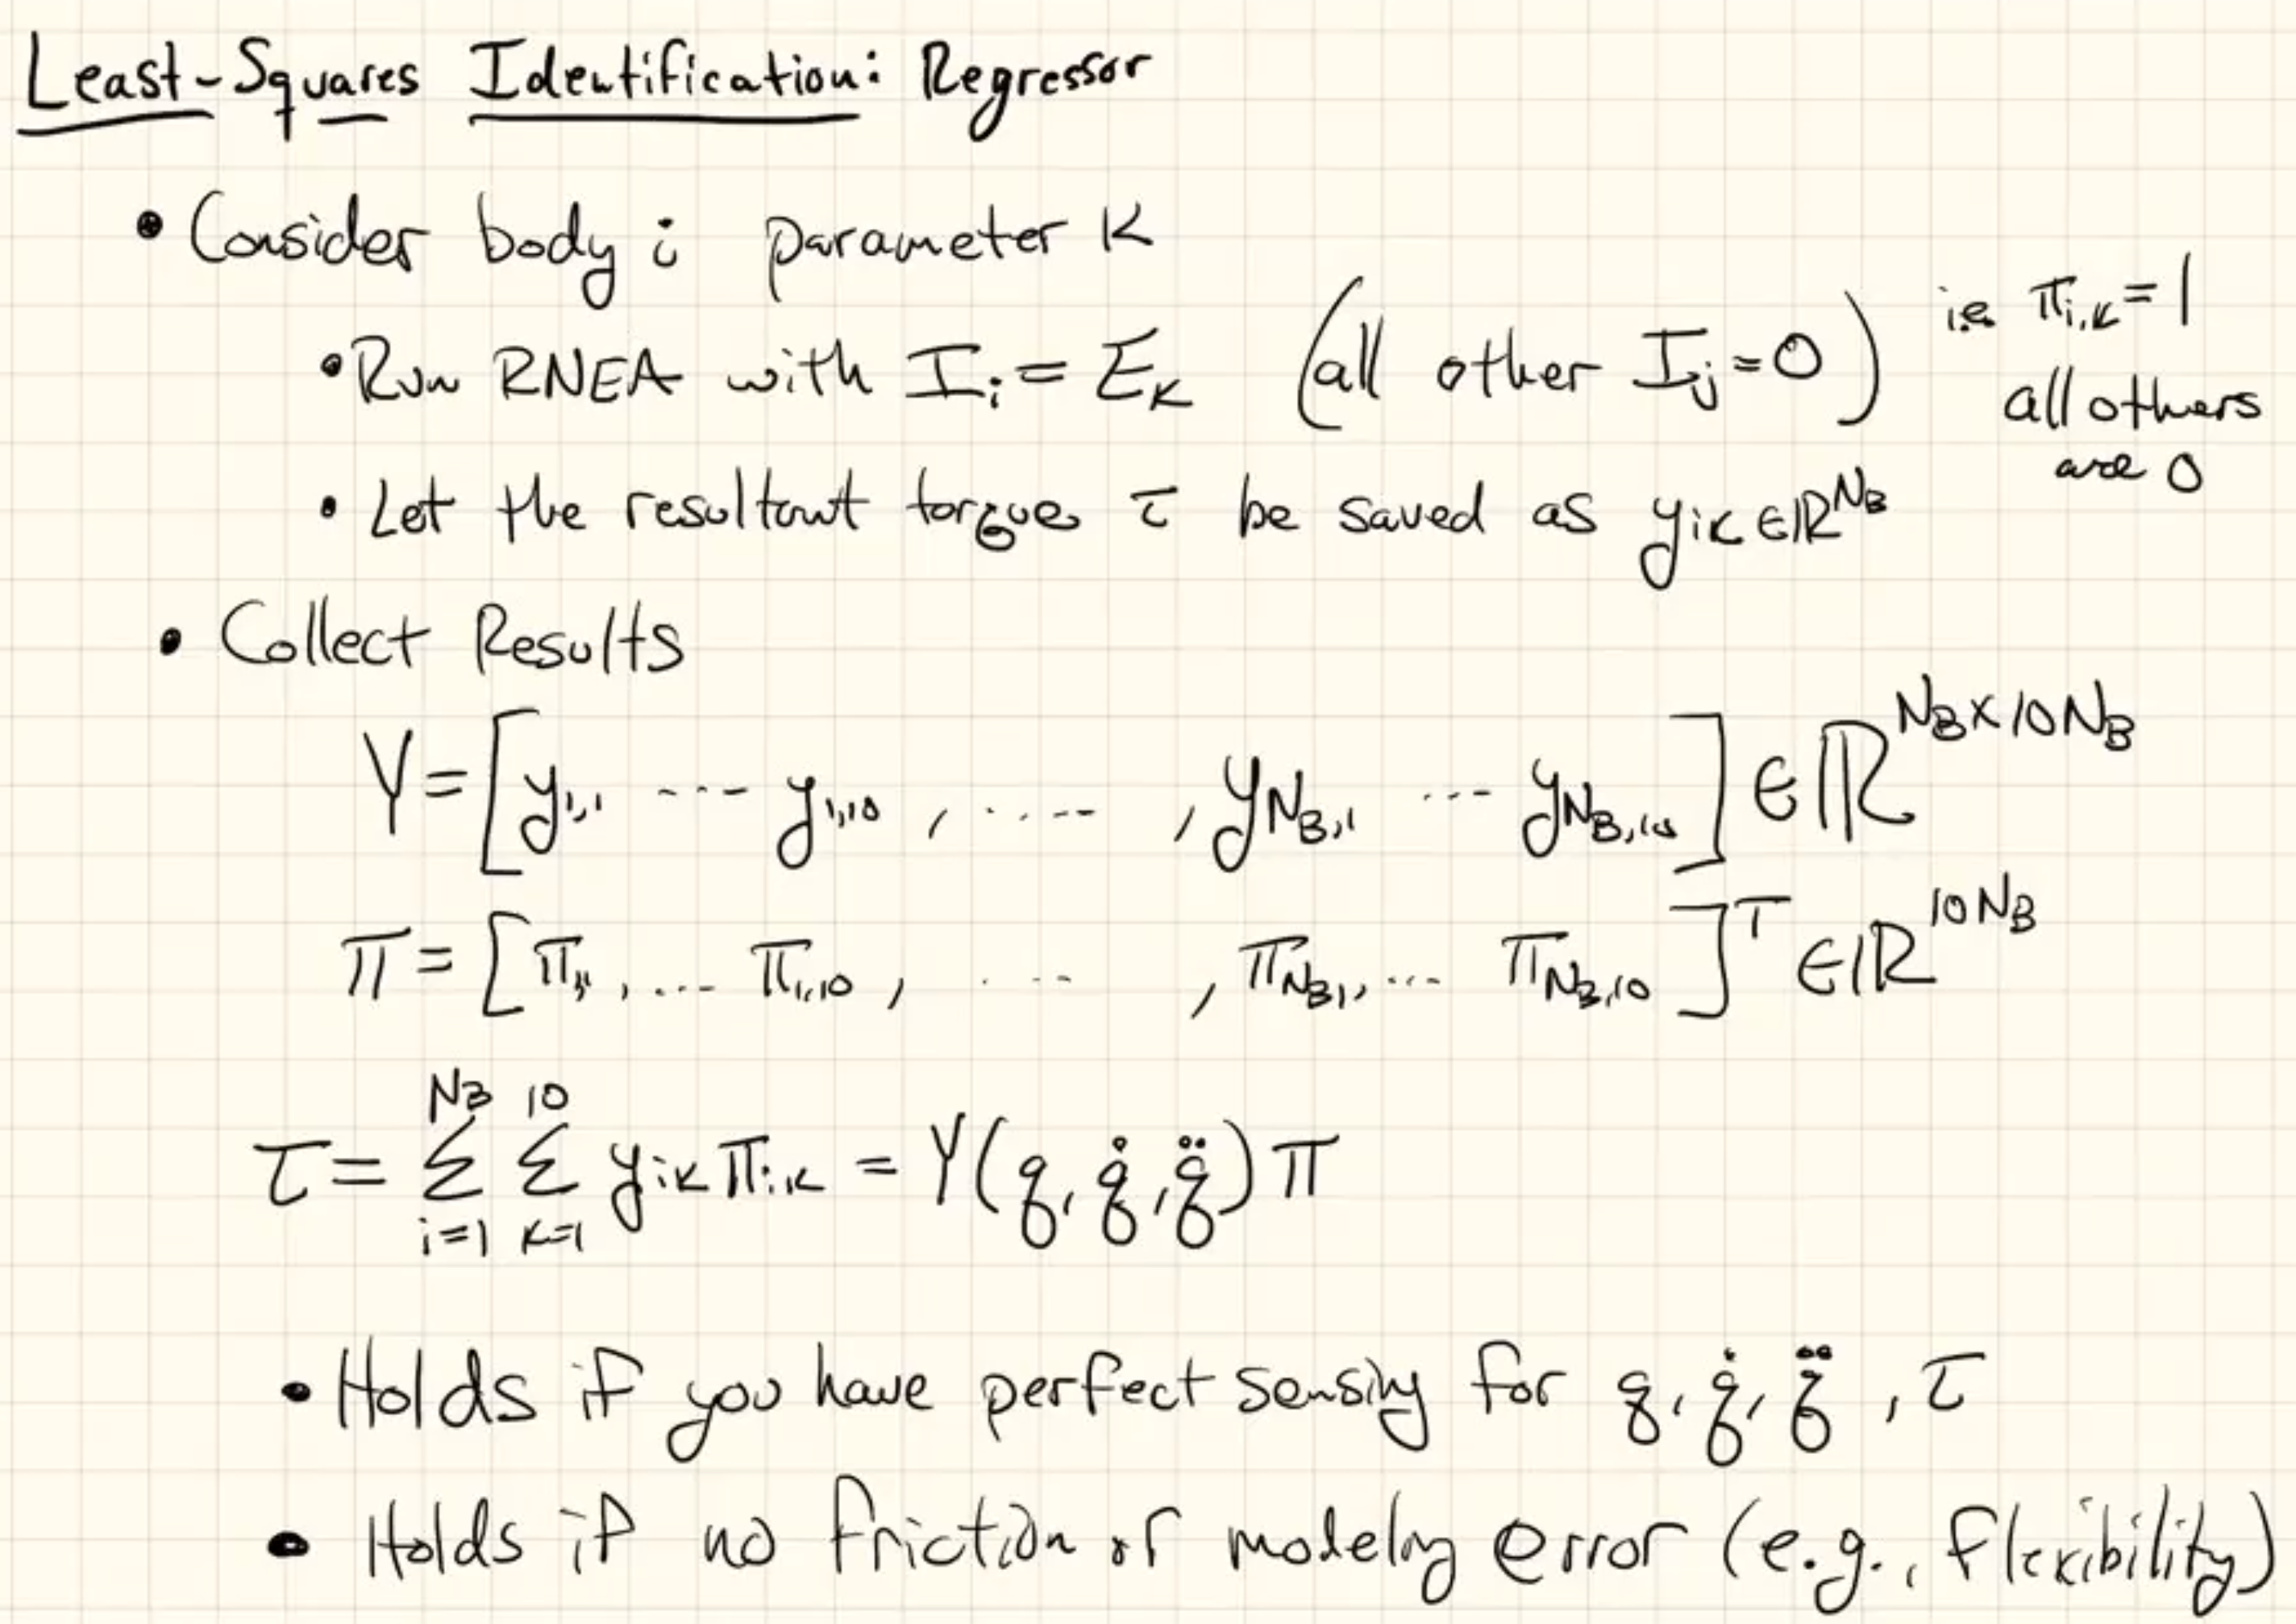 Least-Squares Identification: Regressor
• Consider body i parameter K
• Run RNEA with I_i = E_K (all other I_j = 0) i.e. π_{i,K} = 1
all others
are 0
• Let the resultant torque τ be saved as y_{iK} ∈ ℝ^{N_B}
• Collect Results
Y = [y_{1,1} --- y_{1,10} , ..... , y_{N_B,1} ... y_{N_B,10}] ∈ ℝ^{N_B×10N_B}
π = [π_{1,1}, .... π_{1,10} , .... , π_{N_B,1}, ... π_{N_B,10}]^T ∈ ℝ^{10N_B}
τ = Σ_{i=1}^{N_B} Σ_{K=1}^{10} y_{iK} π_{i,K} = Y(q, q̇, q̈) π
• Holds if you have perfect sensing for q, q̇, q̈, τ
• Holds if no friction or modeling error (e.g., flexibility)